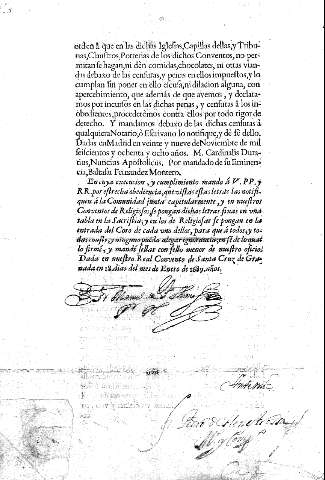 orden à que en las dichas Iglesias, Capillas dellas, y Tribu-
nas, Claustros, Porterias de los dichos Conventos, no per-
mitan se hagan, ni dèn comidas, chocolates, ni otras vian-
das debaxo de las censuras, y penas en ellos impuestos, y lo
cumplan sin poner en ello escusa, ni dilacion alguna, con
apercebimiento, que además de que avemos, y declara-
mos por incursos en las dichas penas, y censuras à los ino-
bedientes, procederèmos contra ellos por todo rigor de
derecho. Y mandamos debaxo de las dichas censuras à
qualquiera Notario, ò Escrivano lo notifique, y dè fee dello.
Dadas en Madrid en veinte y nueve de Noviembre de mil
seiscientos y ochenta y ocho años. M. Cardinalis Dura-
tius, Nuncius Apostolicus. Por mandado de su Eminen-
cia, Baltasar Fernandez Montero.
En cuya execucion, y cumplimiento mando à V. PP. y
RR. por estrecha obediencia, que vistas estas letras las notifi-
quen à la Comunidad junta capitularmente, y en nuestros
Conventos de Religiosos, se pongan dichas letras fixas en una
tabla en la Sacristia; y en los de Religiosas se pongan en la
entrada del Coro de cada uno dellos, para que à todos, y to-
das conste, y ninguno pueda alegar ignorancia; en fee de lo qual
lo firmè, y mandè sellar con sello menor de nuestro oficio.
Dada en nuestro Real Convento de Santa Cruz de Gra-
nada en 18. dias del mes de Enero de 1689. años.